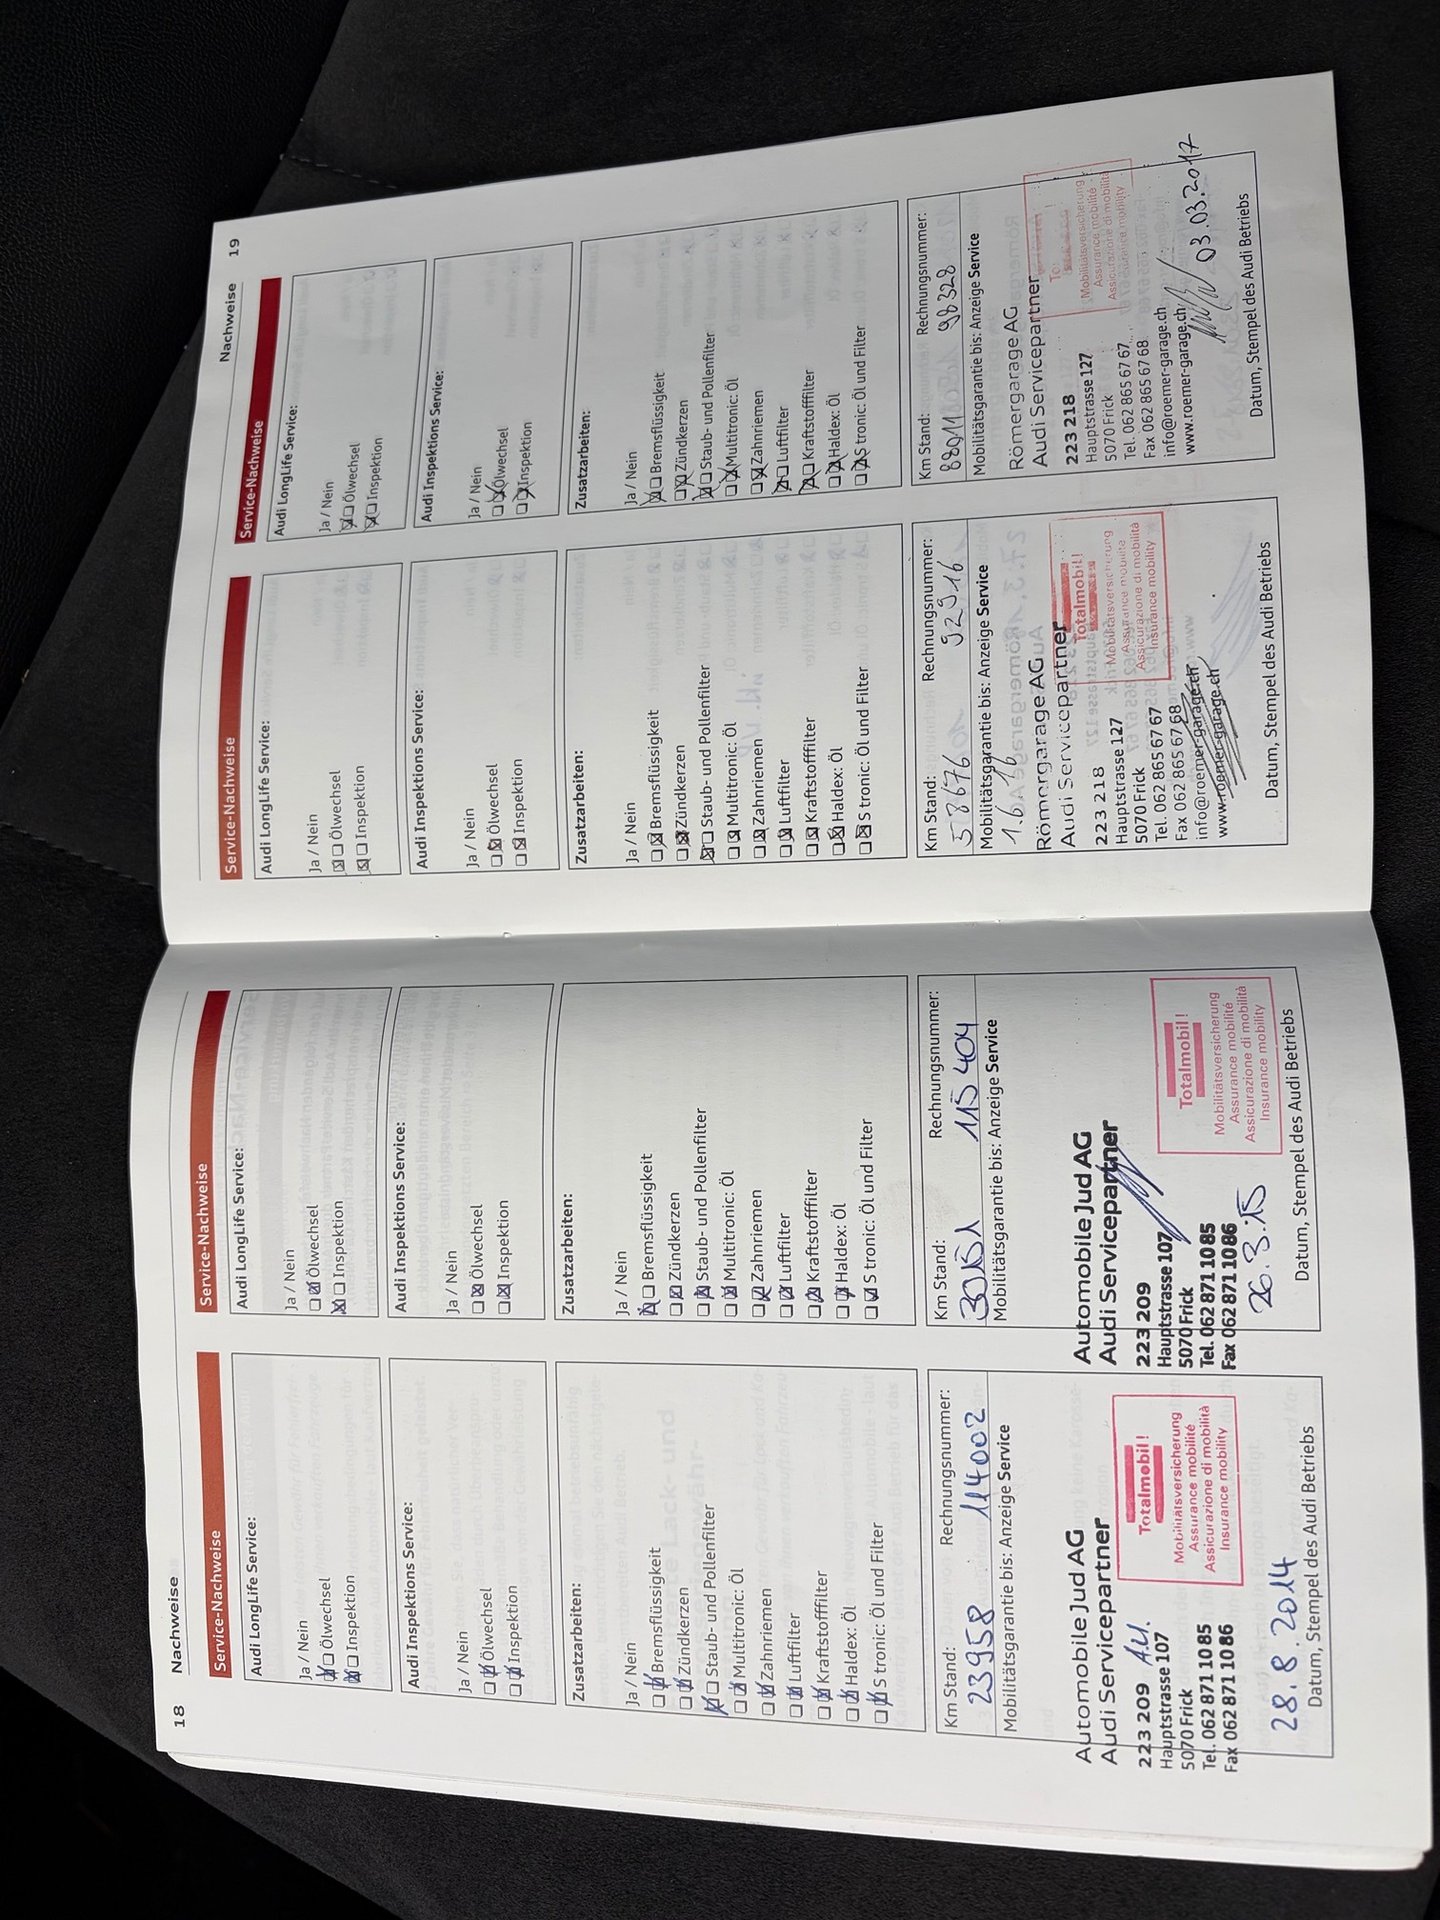 18 Nachweise
Service-Nachweise
Audi LongLife Service:
Ja / Nein
Ölwechsel
Inspektion
Audi Inspektions Service:
Ja / Nein
Ölwechsel
Inspektion
Zusatzarbeiten:
Ja / Nein
Bremsflüssigkeit
Zündkerzen
Staub- und Pollenfilter
Multitronic: Öl
Zahnriemen
Luftfilter
Kraftstofffilter
Haldex: Öl
S tronic: Öl und Filter
Km Stand: Rechnungsnummer:
23958 114002
Mobilitätsgarantie bis: Anzeige Service
Automobile Jud AG
Audi Servicepartner
223 209 A.U.
Hauptstrasse 107
5070 Frick
Tel. 062 871 10 85
Fax 062 871 10 86
Totalmobil!
Mobilitätsversicherung
Assurance mobilité
Assicurazione di mobilità
Insurance mobility
28.8.2014
Datum, Stempel des Audi Betriebs
Service-Nachweise
Audi LongLife Service:
Ja / Nein
Ölwechsel
Inspektion
Audi Inspektions Service:
Ja / Nein
Ölwechsel
Inspektion
Zusatzarbeiten:
Ja / Nein
Bremsflüssigkeit
Zündkerzen
Staub- und Pollenfilter
Multitronic: Öl
Zahnriemen
Luftfilter
Kraftstofffilter
Haldex: Öl
S tronic: Öl und Filter
Km Stand: Rechnungsnummer:
115404
Mobilitätsgarantie bis: Anzeige Service
Automobile Jud AG
Audi Servicepartner
223 209
Hauptstrasse 107
5070 Frick
Tel. 062 871 10 85
Fax 062 871 10 86
Totalmobil!
Mobilitätsversicherung
Assurance mobilité
Assicurazione di mobilità
Insurance mobility
26.3.15
Datum, Stempel des Audi Betriebs
Nachweise 19
Service-Nachweise
Audi LongLife Service:
Ja / Nein
Ölwechsel
Inspektion
Audi Inspektions Service:
Ja / Nein
Ölwechsel
Inspektion
Zusatzarbeiten:
Ja / Nein
Bremsflüssigkeit
Zündkerzen
Staub- und Pollenfilter
Multitronic: Öl
Zahnriemen
Luftfilter
Kraftstofffilter
Haldex: Öl
S tronic: Öl und Filter
Km Stand: Rechnungsnummer:
58676 92916
Mobilitätsgarantie bis: Anzeige Service
1.6.16
Römergarage AG
Audi Servicepartner
223 218
Hauptstrasse 127
5070 Frick
Tel. 062 865 67 67
Fax 062 865 67 68
info@roemer-garage.ch
www.roemer-garage.ch
Totalmobil!
Mobilitätsversicherung
Assurance mobilité
Assicurazione di mobilità
Insurance mobility
Datum, Stempel des Audi Betriebs
Service-Nachweise
Audi LongLife Service:
Ja / Nein
Ölwechsel
Inspektion
Audi Inspektions Service:
Ja / Nein
Ölwechsel
Inspektion
Zusatzarbeiten:
Ja / Nein
Bremsflüssigkeit
Zündkerzen
Staub- und Pollenfilter
Multitronic: Öl
Zahnriemen
Luftfilter
Kraftstofffilter
Haldex: Öl
S tronic: Öl und Filter
Km Stand: Rechnungsnummer:
98328
Mobilitätsgarantie bis: Anzeige Service
Römergarage AG
Audi Servicepartner
223 218
Hauptstrasse 127
5070 Frick
Tel. 062 865 67 67
Fax 062 865 67 68
info@roemer-garage.ch
www.roemer-garage.ch
Mobilitätsversicherung
Assurance mobilité
Assicurazione di mobilità
Insurance mobility
03.03.2017
Datum, Stempel des Audi Betriebs